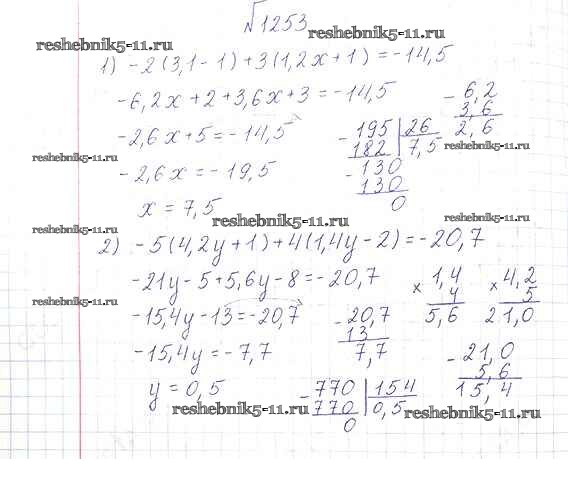 √1253
reshebnik5-11.ru
reshebnik5-11.ru
1) -2(3,1-1)+3(1,2x+1)=-14,5
-6,2x+2+3,6x+3=-14,5
-6,2
3,6
2,6
reshebnik5-11.ru
-2,6x+5=-14,5
-195|26
182|7,5
-130
130
0
reshebnik5-11.ru
-2,6x=-19,5
x=7,5
reshebnik5-11.ru
reshebnik5-11.ru
reshebnik5-11.ru
2) -5(4,2y+1)+4(1,4y-2)=-20,7
-21y-5+5,6y-8=-20,7
×1,4
4
5,6
×4,2
5
21,0
reshebnik5-11.ru
-15,4y-13=-20,7
-20,7
13
7,7
-15,4y=-7,7
-21,0
5,6
15,4
y=0,5
-770|154
770|0,5
0
reshebnik5-11.ru
reshebnik5-11.ru